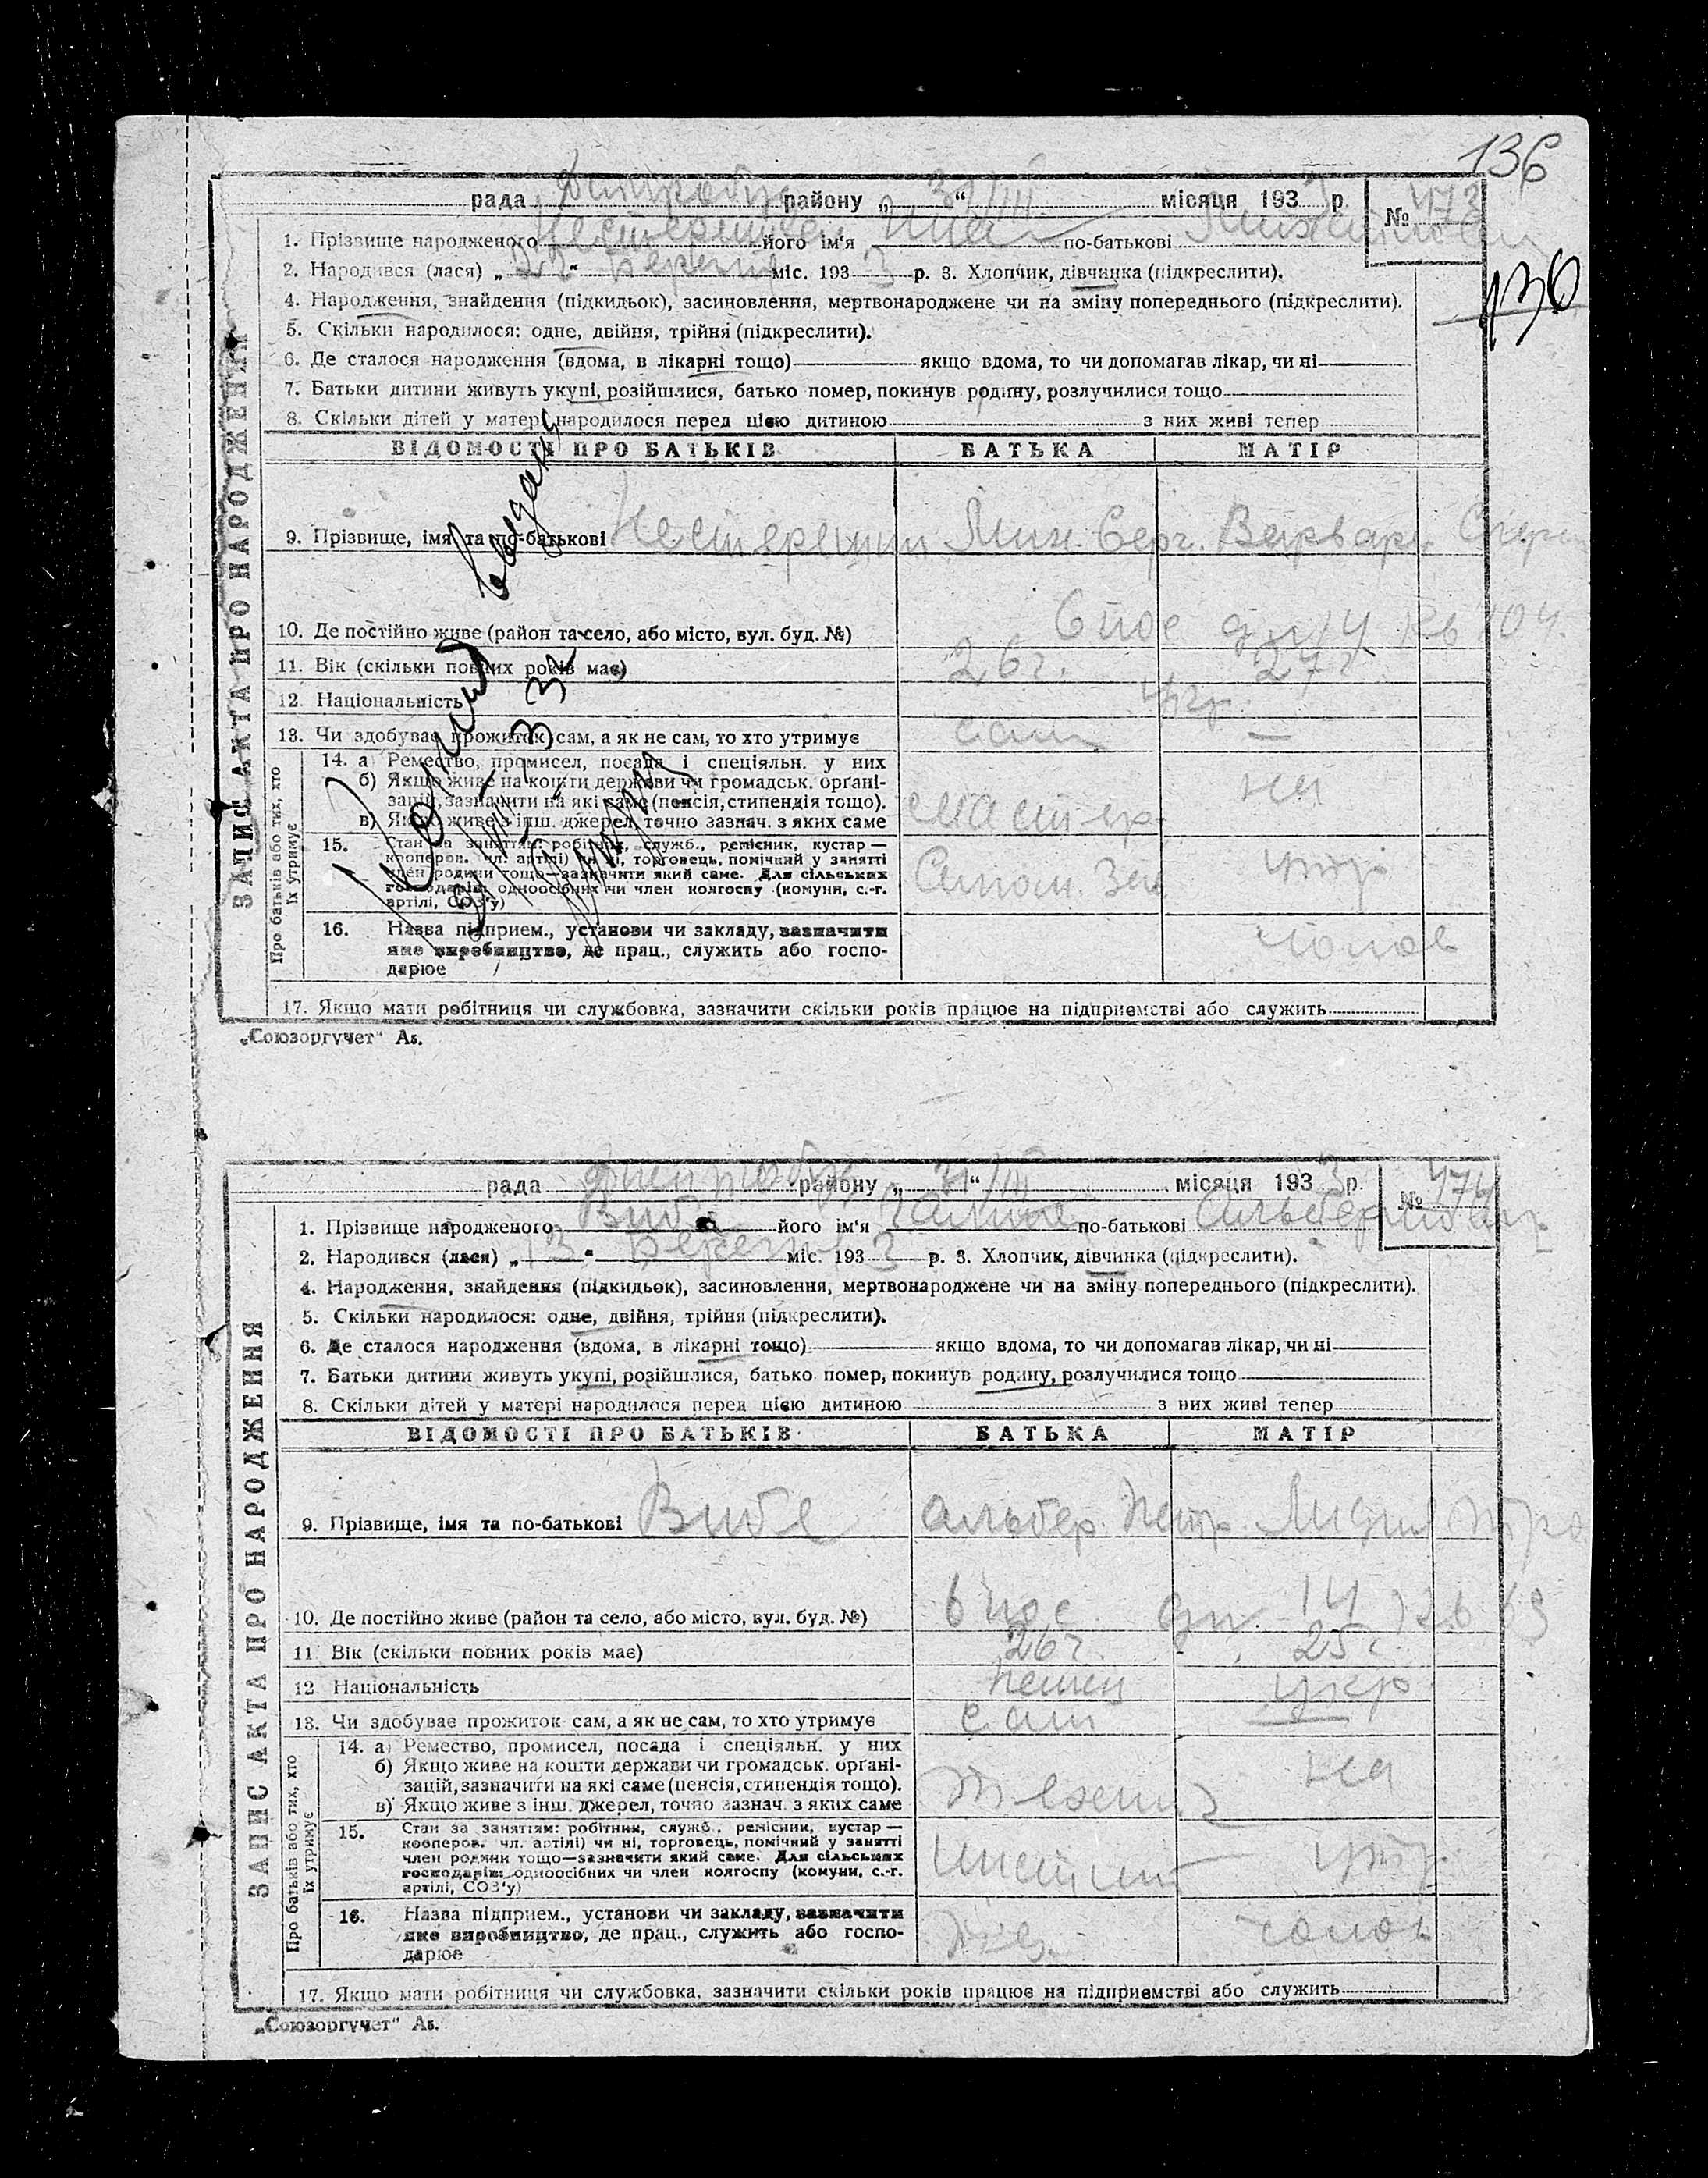 136
рада району „ 31/III “ місяця 1933 р. № 473
1. Прізвище народженого його ім'я по-батькові
136
2. Народився (лася) „22“ березня міс. 1933 р. 3. Хлопчик, дівчинка (підкреслити).
4. Народження, знайдення (підкидьок), засиновлення, мертвонароджене чи на зміну попереднього (підкреслити).
5. Скільки народилося: одне, двійня, трійня (підкреслити).
6. Де сталося народження (вдома, в лікарні тощо) якщо вдома, то чи допомагав лікар, чи ні
7. Батьки дитини живуть укупі, розійшлися, батько помер, покинув родину, розлучилися тощо
8. Скільки дітей у матері народилося перед цією дитиною з них живі тепер
ЗАПИС АКТА ПРО НАРОДЖЕННЯ
ВІДОМОСТІ ПРО БАТЬКІВ БАТЬКА МАТІР
9. Прізвище, імя та по-батькові Мих. Серг. Варвара
10. Де постійно живе (район та село, або місто, вул. буд. №) 6 пос
11. Вік (скільки повних років має) 26 г. 27 г.
12. Національність укр
13. Чи здобуває прожиток сам, а як не сам, то хто утримує сам —
Про батьків або тих, хто їх утримує
14. а) Ремество, промисел, посада і спеціяльн. у них
б) Якщо живе на кошти держави чи громадськ. орґані-
зацій, зазначити на які саме (пенсія, стипендія тощо).
в) Якщо живе з інш. джерел, точно зазнач. з яких саме мастер на
15. Стан за заняттям: робітник, служб., ремісник, кустар —
кооперов. чл. артілі) чи ні, торговець, помічний у занятті
член родини тощо—зазначити який саме. Для сільських
господарів: одноосібних чи член колгоспу (комуни, с.-г.
артілі, СОЗ'у)
16. Назва підприєм., установи чи закладу, зазначити
яке виробництво, де прац., служить або госпо-
дарює
17. Якщо мати робітниця чи службовка, зазначити скільки років працює на підприємстві або служить
„Союзоргучет“ Аз.
рада району „ 31/III “ місяця 1933 р. № 474
1. Прізвище народженого Вибе його ім'я Галина по-батькові
2. Народився (лася) „13“ березня міс. 193 р. 3. Хлопчик, дівчинка (підкреслити).
4. Народження, знайдення (підкидьок), засиновлення, мертвонароджене чи на зміну попереднього (підкреслити).
5. Скільки народилося: одне, двійня, трійня (підкреслити).
6. Де сталося народження (вдома, в лікарні тощо) якщо вдома, то чи допомагав лікар, чи ні
7. Батьки дитини живуть укупі, розійшлися, батько помер, покинув родину, розлучилися тощо
8. Скільки дітей у матері народилося перед цією дитиною з них живі тепер
ЗАПИС АКТА ПРО НАРОДЖЕННЯ
ВІДОМОСТІ ПРО БАТЬКІВ БАТЬКА МАТІР
9. Прізвище, імя та по-батькові Вибе Альбер. Петр. Лидия
10. Де постійно живе (район та село, або місто, вул. буд. №) 6 пос 14
11. Вік (скільки повних років має) 26 г. 25 г.
12. Національність немец укр
13. Чи здобуває прожиток сам, а як не сам, то хто утримує сам —
Про батьків або тих, хто їх утримує
14. а) Ремество, промисел, посада і спеціяльн. у них
б) Якщо живе на кошти держави чи громадськ. орґані-
зацій, зазначити на які саме (пенсія, стипендія тощо).
в) Якщо живе з інш. джерел, точно зазнач. з яких саме на
15. Стан за заняттям: робітник, служб., ремісник, кустар —
кооперов. чл. артілі) чи ні, торговець, помічний у занятті
член родини тощо—зазначити який саме. Для сільських
господарів: одноосібних чи член колгоспу (комуни, с.-г.
артілі, СОЗ'у)
16. Назва підприєм., установи чи закладу, зазначити
яке виробництво, де прац., служить або госпо-
дарює
17. Якщо мати робітниця чи службовка, зазначити скільки років працює на підприємстві або служить
„Союзоргучет“ Аз.